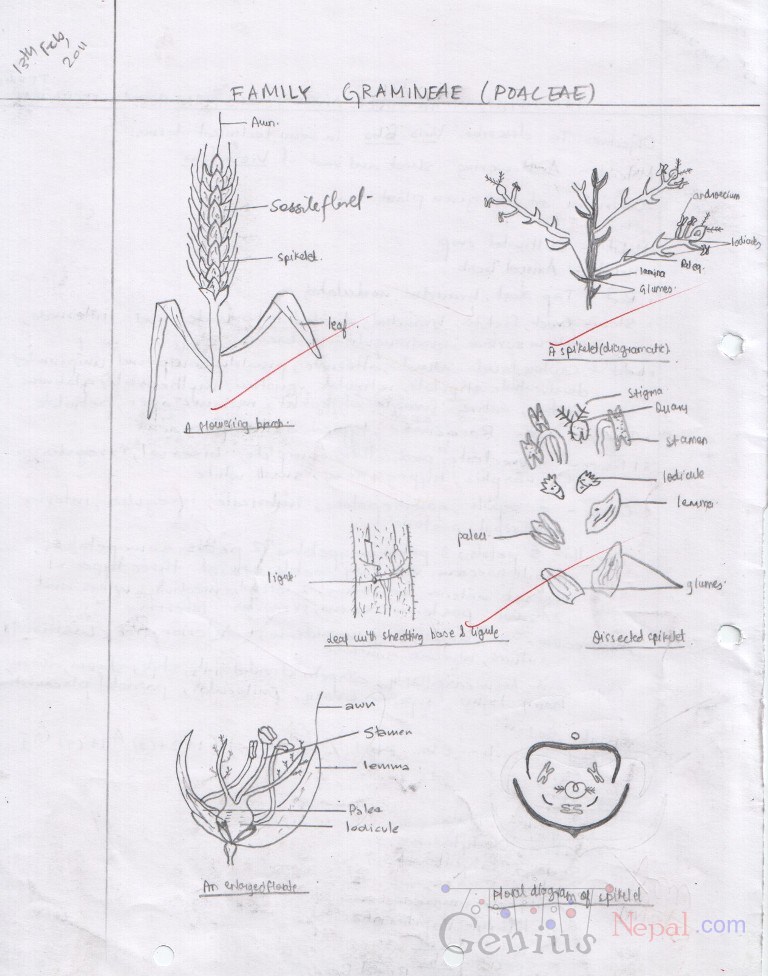 13th Feb, 2011
FAMILY GRAMINEAE (POACEAE)
Awn.
Sessile floret
spikelet.
leaf
A flowering branch.
androecium
lodicules
Palea.
lemma
Glumes.
A spikelet (diagramatic).
Stigma
Ovary
stamen
lodicule
lemma
palea
glumes.
Dissected spikelet
ligule
Leaf with sheathing base & ligule
awn
Stamen
lemma
Palea
lodicule
An enlarged florate
Floral diagram of spikelet
Genius Nepal.com